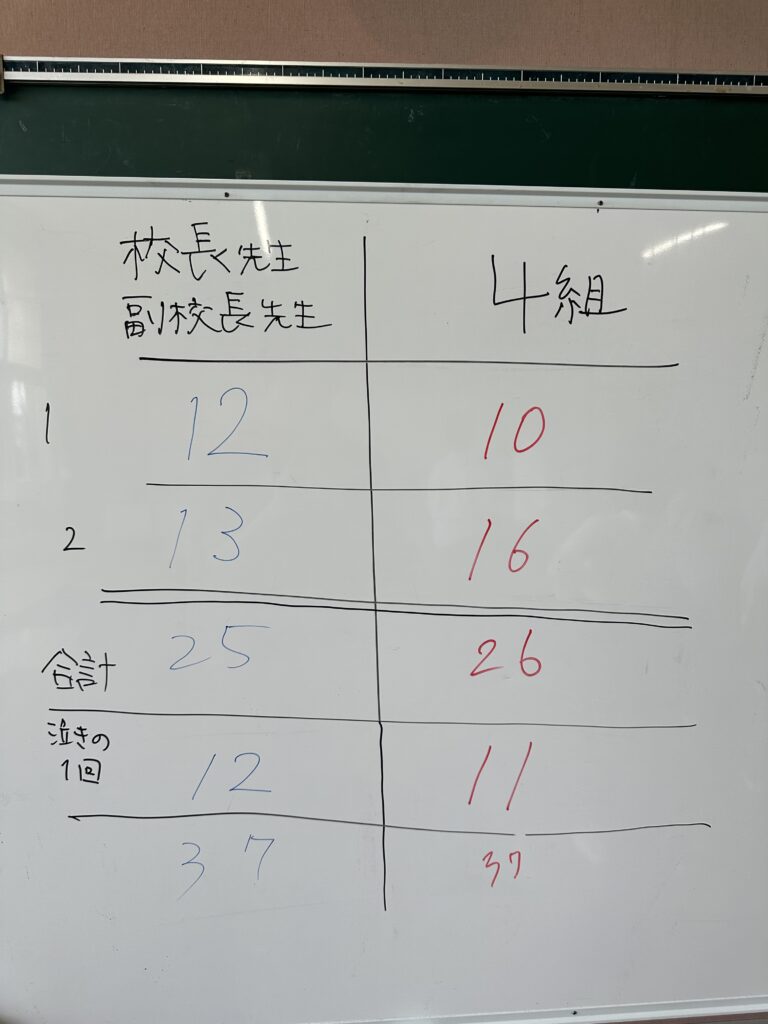 校長先生
副校長先生
4組
1 12 10
2 13 16
合計 25 26
泣きの
1回 12 11
37 37